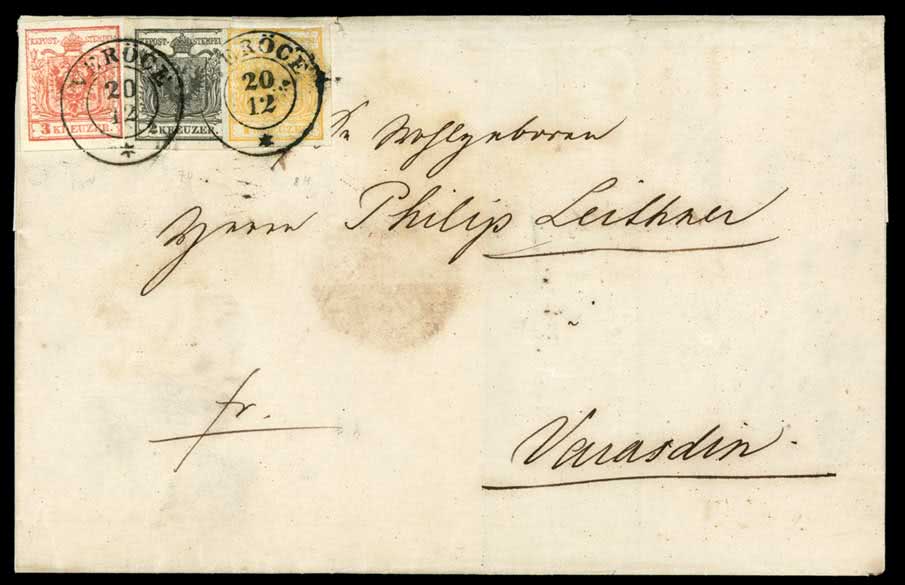 KKPOST-STEMPEL
3 KREUZER.
VERÖCE
20
12
KKPOST-STEMPEL
2 KREUZER.
VERÖCE
20
12
Sr Wohlgeboren
Herrn Philip Leithner
fr.
Varasdin.